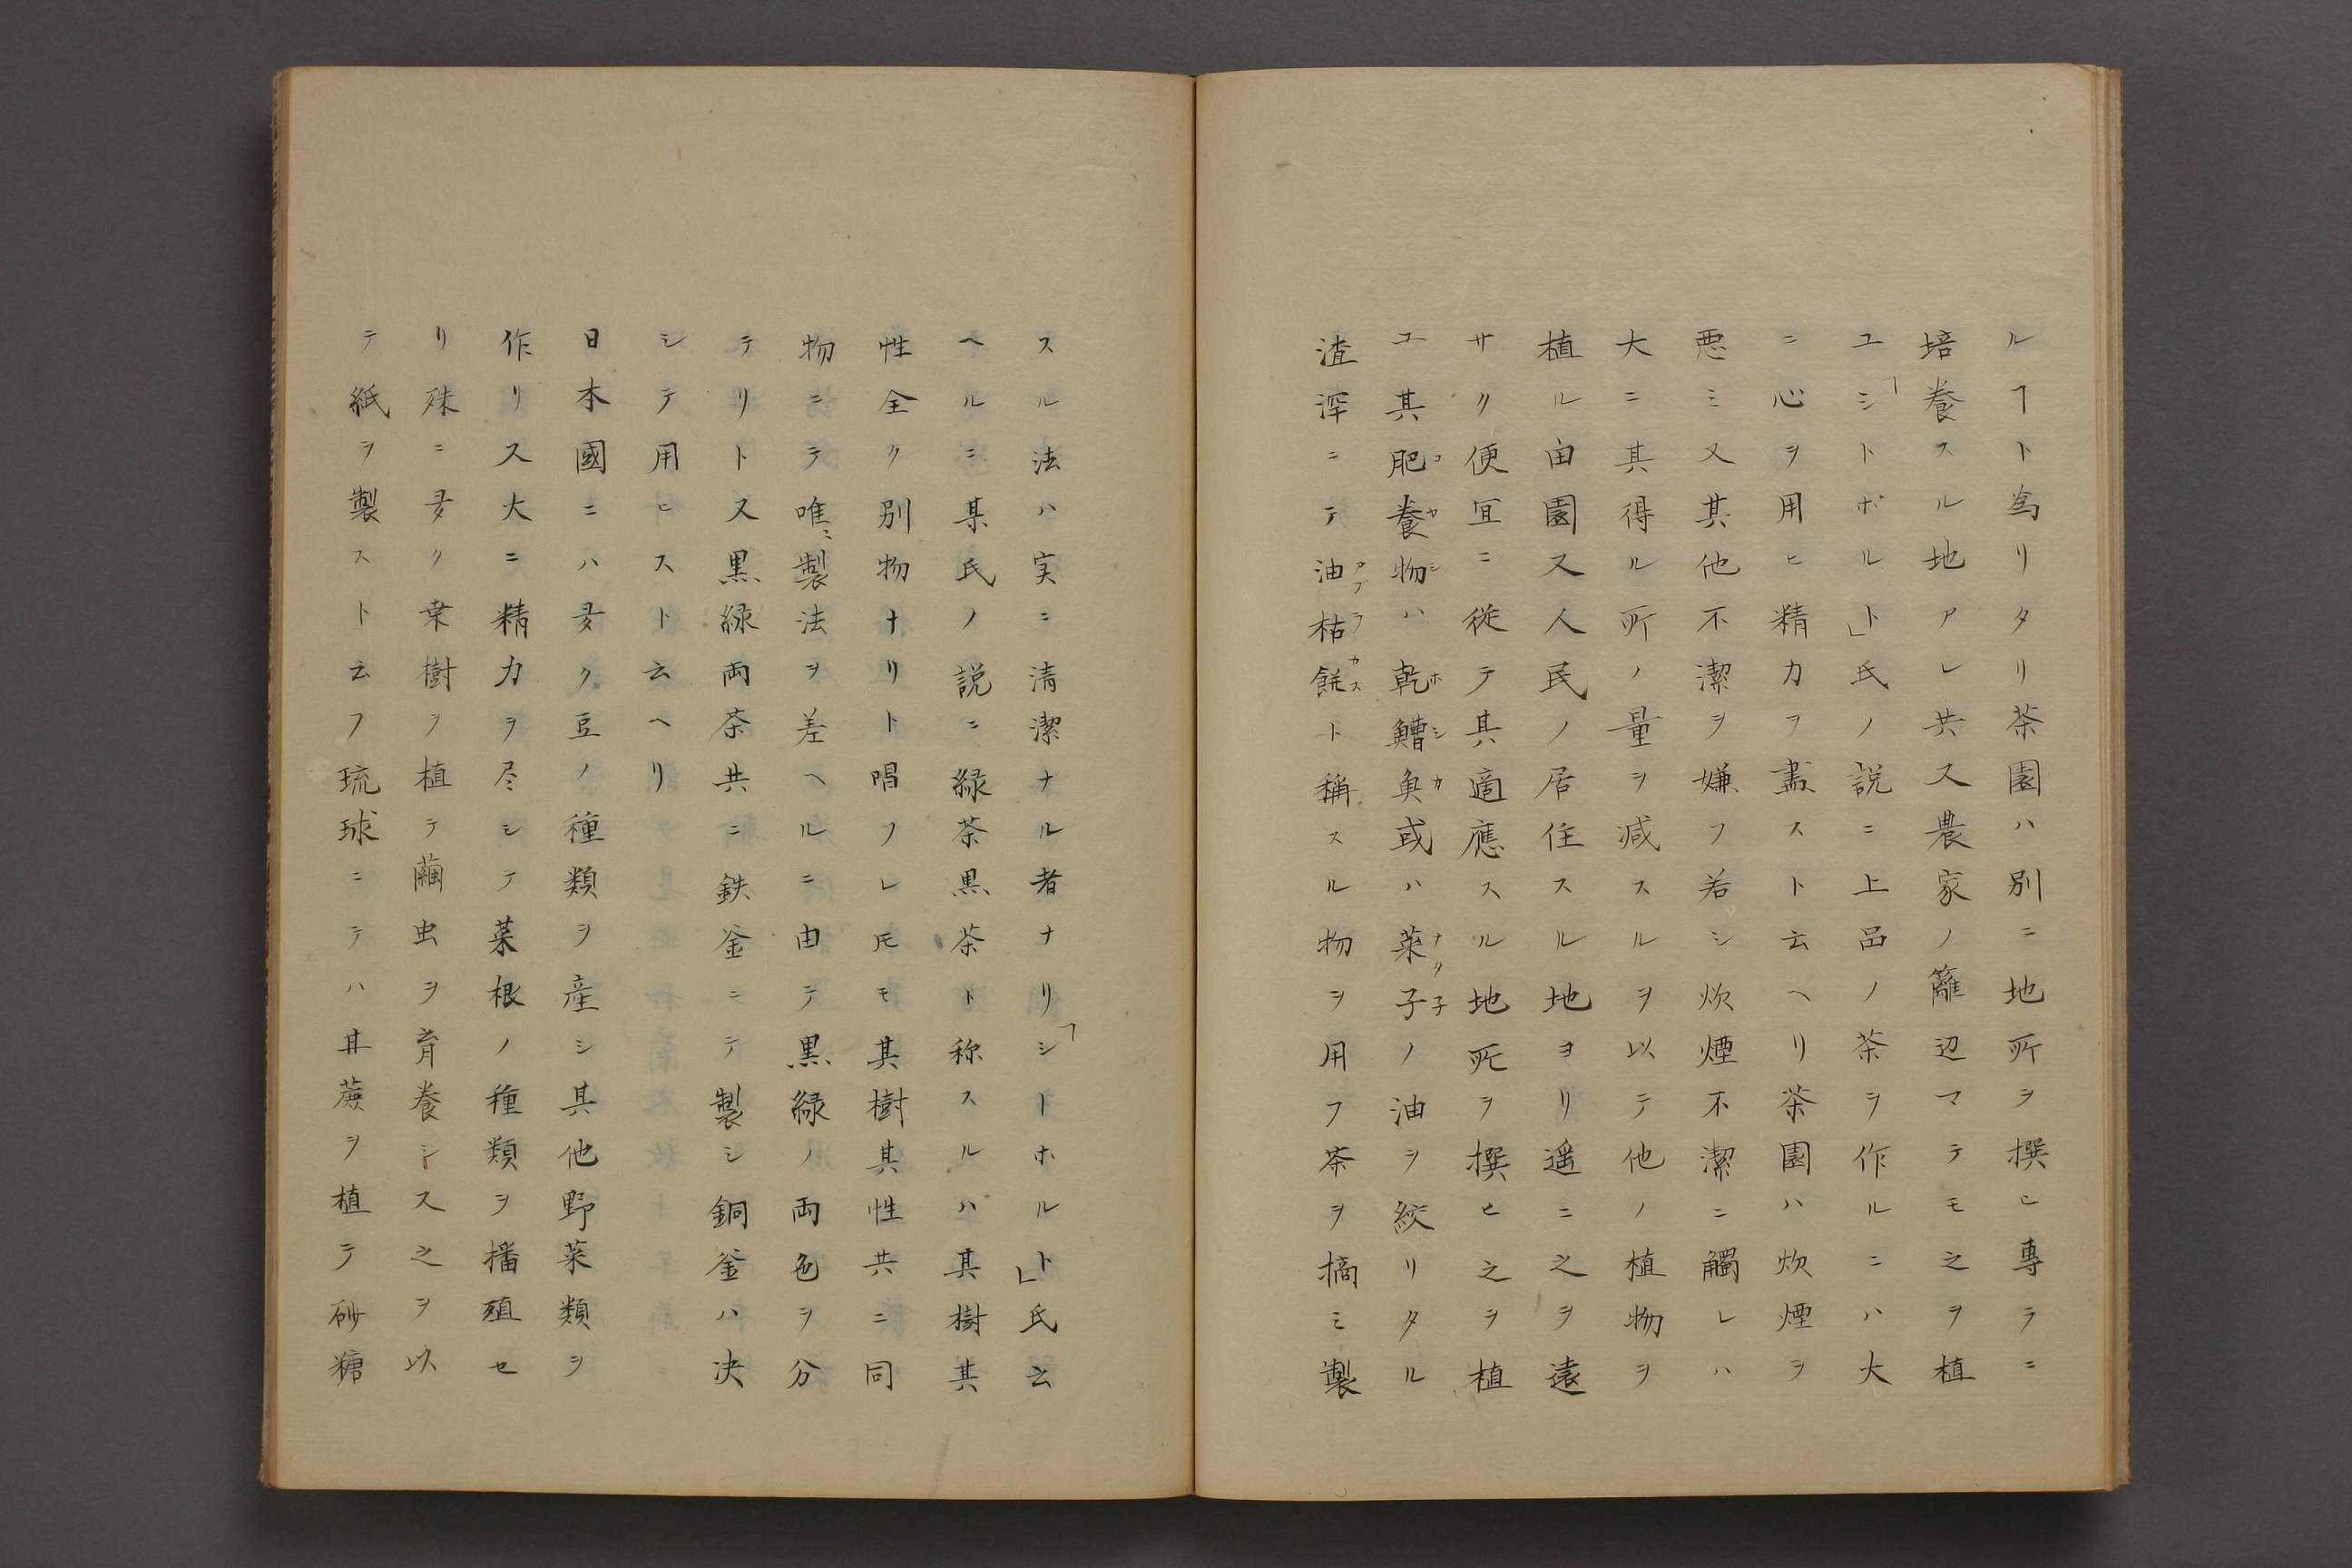 ルヿト為リタリ茶園ハ別ニ地所ヲ撰ヒ專ラニ
培養スル地アレ共又農家ノ籬辺マテモ之ヲ植
ユ「シトボルト」氏ノ説ニ上品ノ茶ヲ作ルニハ大
ニ心ヲ用ヒ精力ヲ盡スト云ヘリ茶園ハ炊煙ヲ
悪ミ又其他不潔ヲ嫌フ若シ炊煙不潔ニ觸レハ
大ニ其得ル所ノ量ヲ減スルヲ以テ他ノ植物ヲ
植ル田園又人民ノ居住スル地ヨリ遥ニ之ヲ遠
サク便宜ニ從テ其適應スル地所ヲ撰ヒ之ヲ植
ユ其肥養物ハ乾鰽魚或ハ菜子ノ油ヲ絞リタル
渣滓ニテ油枯餅ト稱スル物ヲ用フ茶ヲ摘ミ製
スル法ハ実ニ清潔ナル者ナリ「シーホルト」氏云
ヘルニ某氏ノ説ニ緑茶黒茶ト称スルハ其樹其
性全ク別物ナリト唱フレ𪜈モ其樹其性共ニ同
物ニテ唯〻製法ヲ差ヘルニ由テ黒緑ノ両色ヲ分
テリト又黒緑両茶共ニ鉄釜ニテ製シ銅釜ハ决
シテ用ヒスト云ヘリ
日本國ニハ多ク豆ノ種類ヲ産シ其他野菜類ヲ
作リ又大ニ精力ヲ尽シテ菜根ノ種類ヲ播殖セ
リ殊ニ多ク桒樹ヲ植テ繭虫ヲ育養シ又之ヲ以
テ紙ヲ製スト云フ琉球ニテハ甘蔗ヲ植テ砂糖